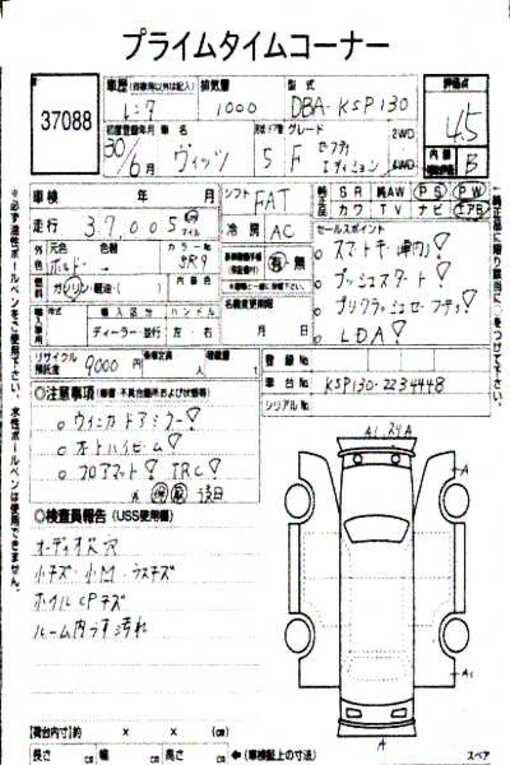 プライムタイムコーナー
37088
車歴 (自家用以外は記入) 排気量 型式
レンタ 1000 DBA-KSP130
評価点
4.5
初度登録年月 車名 ドア グレード
30/6月 ヴィッツ 5 F セーフティ エディション
2WD
4WD
内装
B
車検 年 月
シフト FAT
純正品 SR 純AW PS PW
カワ TV ナビ エアB
走行 37,005 km マイル
冷房 AC
セールスポイント
外色 元色 色替 カラーNo
ボルドー 3R9
スマートキー(車内)!
有・無
プッシュスタート!
燃料 ガソリン・軽油・( ) 内装色
プリクラッシュセーフティ!
輸入車用 年式 輸入区分 ハンドル
ディーラー・並行 左・右
名義変更期限
月 日
LDA!
リサイクル預託金 9000円 乗車定員 人 積載量 t
登録No
車台No KSP130-2234448
シリアルNo
◎注意事項 (修復・不具合箇所および状態等)
○ウィンカードアミラー!
○オートハイビーム!
○フロアマット! IRC!
◎検査員報告 (USS使用欄)
オーディオ欠穴
小キズ・小凹・ウスキズ
ホイルCPキズ
ルーム内ウす汚れ
A1
A
A1
A
[荷台内寸]約 × × (cm)
長さ cm 幅 cm 高さ cm ←(車検証上の寸法)
スペア
※必ず油性ボールペンをご使用下さい。水性ボールペンは使用できません。